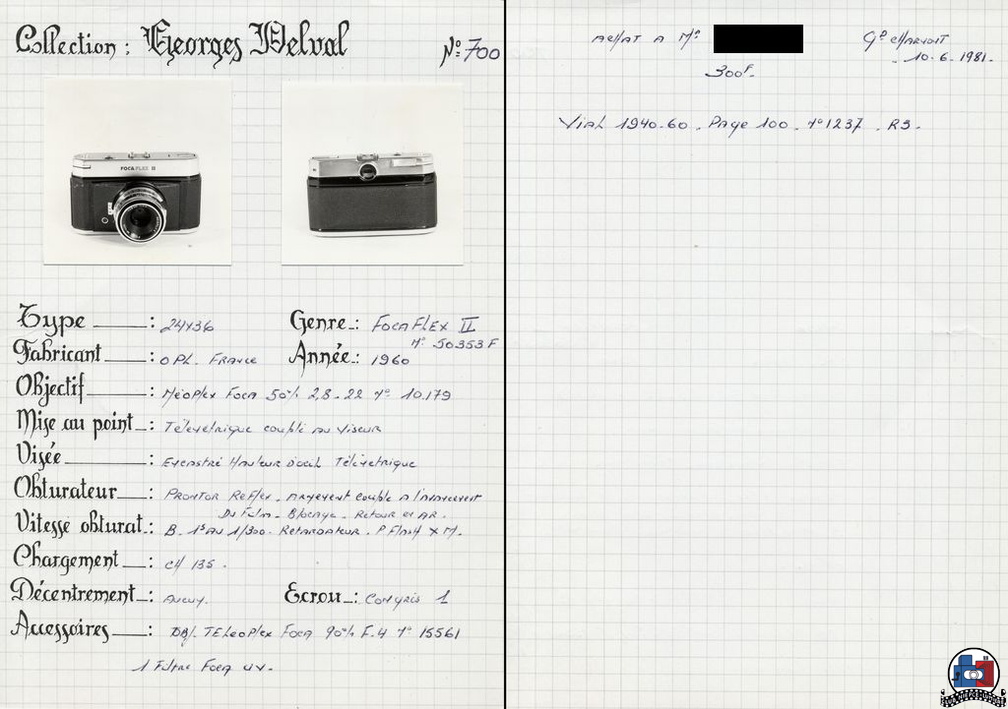 Collection : Georges Delval
N°: 700
FOCAFLEX II
Type : 24x36
Genre : FocaFlex II
N° 50353F
Fabricant : OPL. France
Année : 1960
Objectif : Neoplex Foca 50% 2,8-22 N° 10.179
Mise au point : Télémetrique couplé au Viseur
Visée : Encastré Hauteur d'oeil Télémetrique
Obturateur : Prontor Reflex - Armement couplé a l'avancement
Du Film - Blocage - Retour en AR.
Vitesse obturat : B. 1s au 1/300 - Retardateur. P Flash X M.
Chargement : CH 135 .
Décentrement : Aucun.
Ecrou : Congrès 1
Accessoires : Obj. TELeoplex Foca 90% F.4 N° 15561
1 Filtre Foca UV.
ACHAT A Mr
Gd Charmont
10.6.1981.
300F.
Vial 1940.60 . Page 100 . N°1237 . R3.